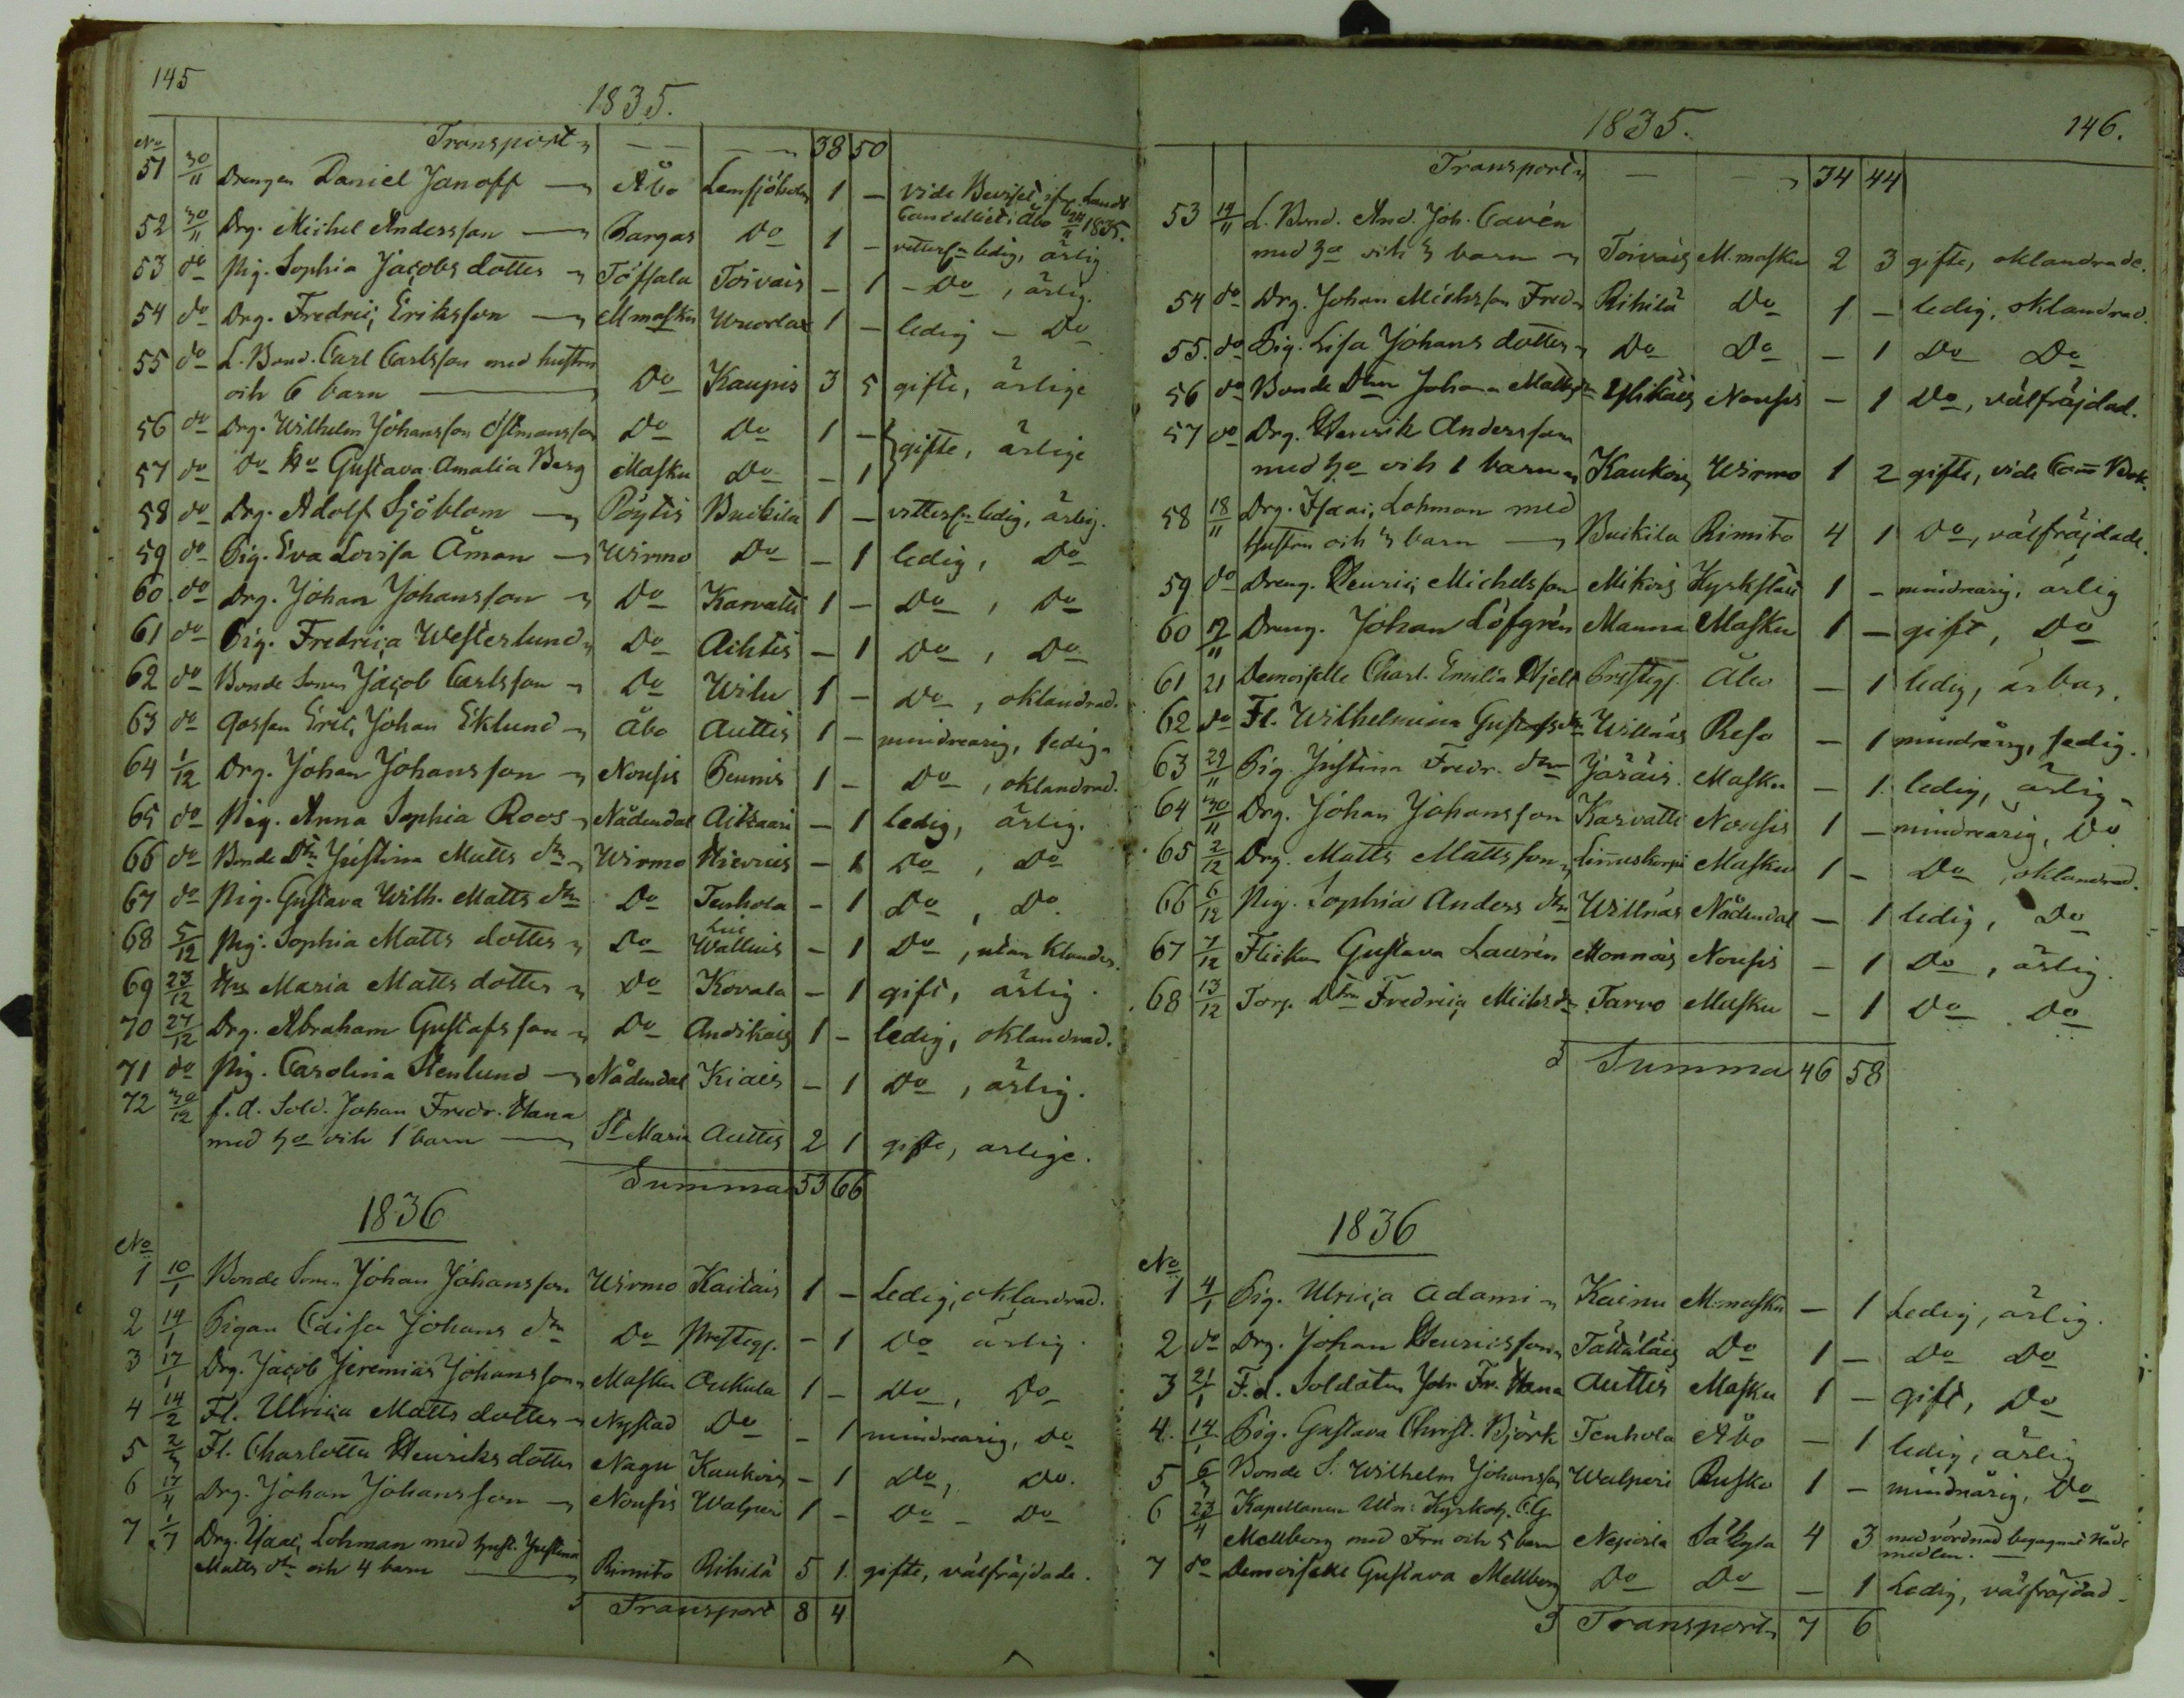 145
1835.
No Transport 38 50
51 30/11 Drengen Daniel Janoff Åbo Lemsjöholm 1 — vide Beviset ifr. Lands Cancelliet i Åbo 1835.
52 30/11 Drg. Michel Andersson Pargas Do 1 — vitterl. ledig, ärlig
53 do Pig. Sophia Jacobs dotter Töfsala Toivais — 1 — Do, ärlig.
54 do Drg. Fredric Eriksson M masku Wuorlax 1 — ledig — Do
55 do L. Bond. Carl Carlsson med hustru
och 6 barn Do Kaupis 3 5 gifte, ärlige
56 do Drg. Wilhelm Johansson Östmansson Do Do 1 —
57 do Do Ho Gustava Amalia Berg Masku Do — 1 gifte, ärlige
58 do Drg. Adolf Sjöblom Pöytis Buckila 1 — vitterl. ledig, ärlig.
59 do Pig. Eva Lovisa Åman Wirmo Do — 1 ledig, Do
60 do Drg. Johan Johansson Do Karvatti 1 — Do, Do
61 do Pig. Fredrica Westerlund Do Aihtis — 1 Do, Do
62 do Bonde Sonen Jacob Carlsson Do Wilu 1 — Do, oklandrad.
63 do Gossen Eric Johan Eklund Åbo Auttis 1 — mindreårig, ledig
64 1/12 Drg. Johan Johansson Nousis Peunis 1 — Do, oklandrad.
65 do Pig. Anna Sophia Roos Nådendal Aitkaari — 1 ledig, ärlig.
66 do Bonde Dtr Justina Matts dtr Wirmo Hievuis — 1 Do, Do
67 do Pig. Gustava Wilh. Matts dtr Do Tenhola — 1 Do, Do.
68 5/12 Pig. Sophia Matts dotter Do Walluis — 1 Do, utan klander.
69 23/12 Maria Matts dotter Do Kovala — 1 gift, ärlig.
70 27/12 Drg. Abraham Gustafsson Do Andikais 1 — ledig, oklandrad.
71 do Pig. Carolina Stenlund Nådendal Kiais — 1 Do, ärlig.
72 30/12 f.d. Sold. Johan Fredr. Hana
med ho och 1 barn St Marie Auttis 2 1 gifte, ärlige.
Summa 53 66
1836
No
1 10/1 Bonde Sonen Johan Johansson Wirmo Kaitais 1 — Ledig, oklandrad.
2 14/1 Pigan Caisa Johans dtr Do Prestegs. — 1 Do ärlig.
3 17/1 Drg. Jacob Jeremias Johansson Masku Oukula 1 — Do, Do
4 14/2 Fl. Ulrica Matts dotter Nystad Do — 1 mindreårig, Do
5 2/3 Fl. Charlotta Henriks dotter Nagu Kaukois — 1 Do, Do.
6 17/4 Drg. Johan Johansson Nousis Walperi 1 — Do — Do
7 1/7 Drg. Isaac Lohman med hust. Justina
Matts dtr och 4 barn Rimito Rihilä 5 1. gifte, välfräjdade.
Transport 8 4
1835.
146.
Transport 34 44
53 14/11 L. Bond. And. Joh. Cavén
med ho och 3 barn Toivais M. masku 2 3 gifte, oklandrade.
54 do Drg. Johan Michsson Fred Rihilä Do 1 — ledig, oklandrad.
55. do Pig. Lisa Johans dotter Do Do — 1 Do Do
56 do Bonde Dtr Johanna Mattsdtr Ylikäis Nousis — 1 Do, välfräjdad.
57 do Drg. Henrik Andersson
med ho och 1 barn Kaukois Wirmo 1 2 gifte, vide Com Bok.
58 18/11 Drg. Isaac Lohman med
hustru och 3 barn Buckila Rimito 4 1 Do, välfräjdade.
59 do Dreng. Henric Michelsson Mikois Kyrkslätt 1 — mindreårig, ärlig
60 17/11 Dreng. Johan Löfgrén Manna Masku 1 — gift, Do
61 21 Demoiselle Charl. Emilia Hjelt Prestegs. Åbo — 1 ledig, ärbar.
62 do Fl. Wilhelmina Gustafsdtr Willnäs Reso — 1 mindreårig, ledig.
63 29/11 Pig. Justina Fredr. dtr Järäis. Masku — 1 ledig, ärlig
64 30/11 Drg. Johan Johansson Karvatti Nousis 1 — mindreårig, Do
65 2/12 Drg. Matts Mattsson Linnuskorpi Masku 1 — Do, oklandrad.
66 6/12 Pig. Sophia Anders dtr Willnäs Nådendal — 1 ledig, Do
67 7/12 Flickan Gustava Laurén Monnois Nousis — 1 Do, ärlig.
68 13/12 Torp. Dtr Fredrica Michsdr Tarvo Masku — 1 Do Do
Summa 46 58
1836
No
1 4/1 Pig. Ulrica Adami Kainu M:masku — 1 Ledig, ärlig.
2 do Drg. Johan Henricsson Tättäläis Do 1 — Do Do
3 21/1 F.d. Soldaten Joh. Fr. Hana Auttis Masku 1 — gift, Do
4. 14 Pig. Gustava Christ. Björk Tenhola Åbo — 1 ledig, ärlig
5 6/3 Bonde S. Wilhelm Johansson Walperi Rusko 1 — mindreårig, Do
6 23/4 Kapellanen Kyrkoh. C.G.
Mellberg med Fru och 5 barn Nejorla Säkyla 4 3 med vördnad begagnat Nådemedlen.
7 do Demoiselle Gustava Mellberg Do Do — 1 Ledig, välfräjdad
Transport 7 6